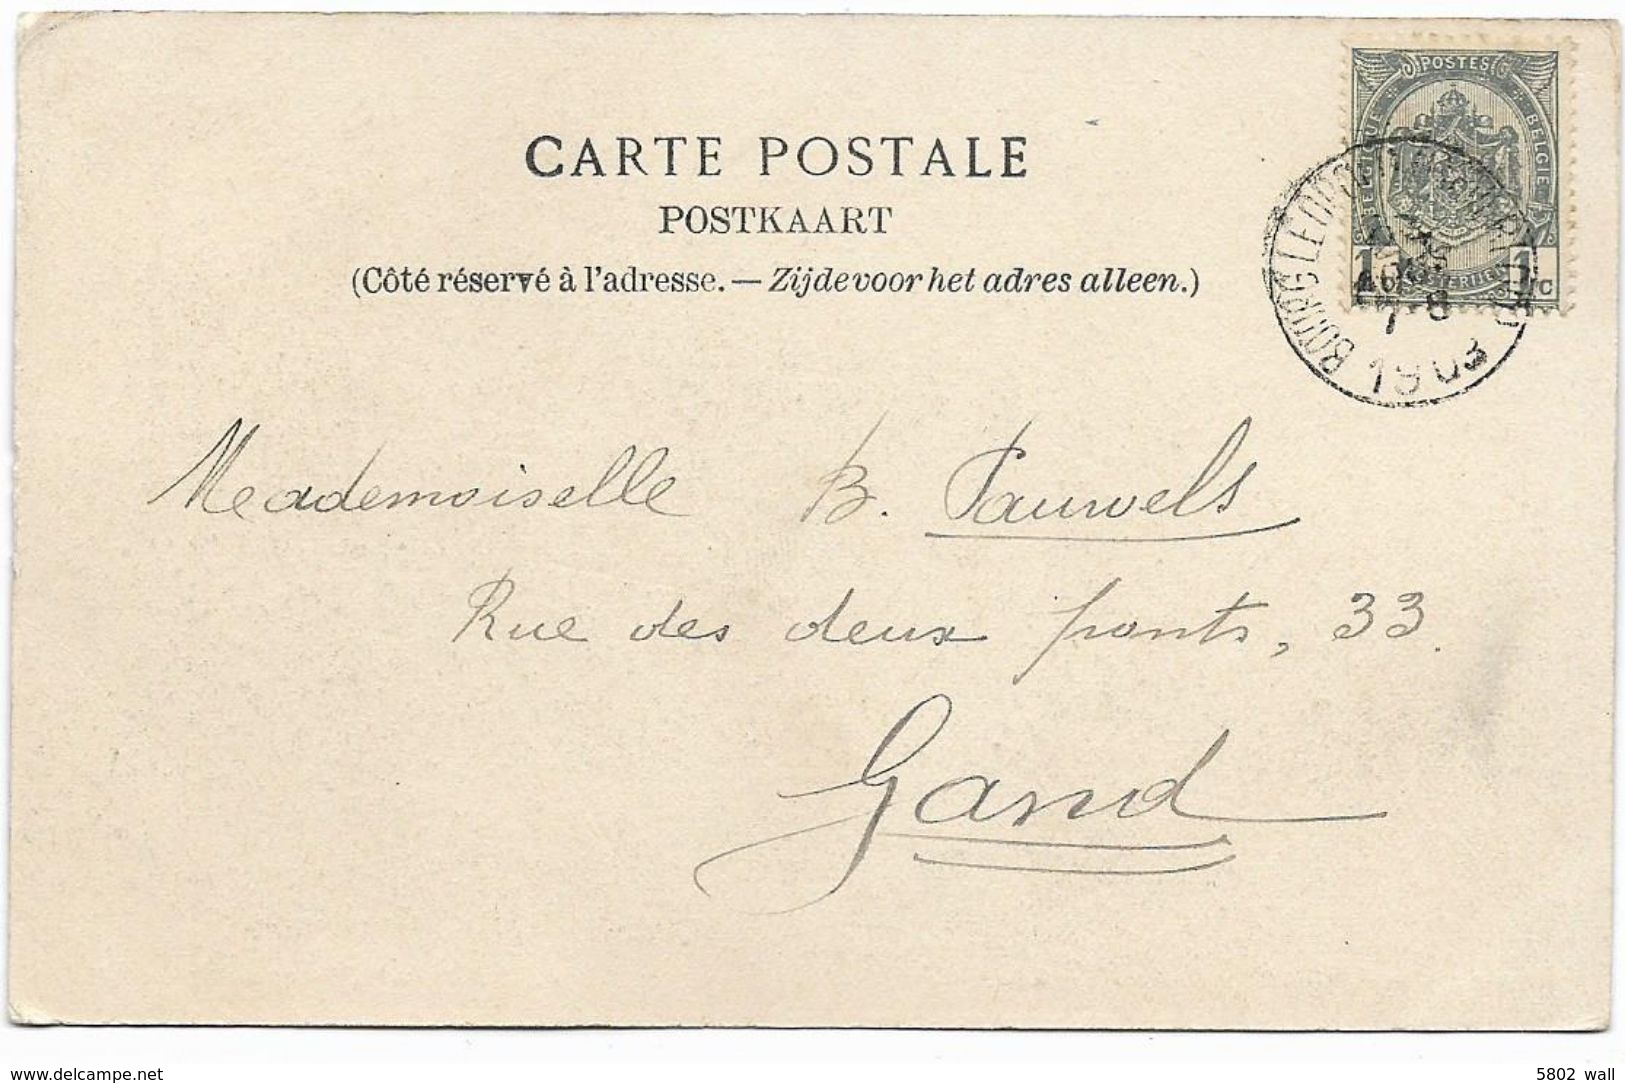 CARTE POSTALE
POSTKAART
(Côté réservé à l'adresse. — Zijde voor het adres alleen.)
POSTES
BELGIQUE
BELGIE
1 1c
BOURG LEOPOLD
7-8
1903
Mademoiselle B. Pauwels
Rue des deux ponts, 33.
Gand
www.delcampe.net
5802 wall